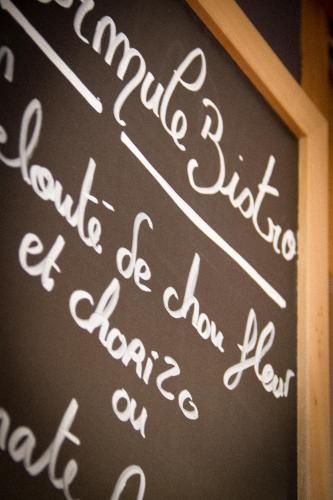 ormule Bistro
elouté de chou fleur
et chorizo
ou